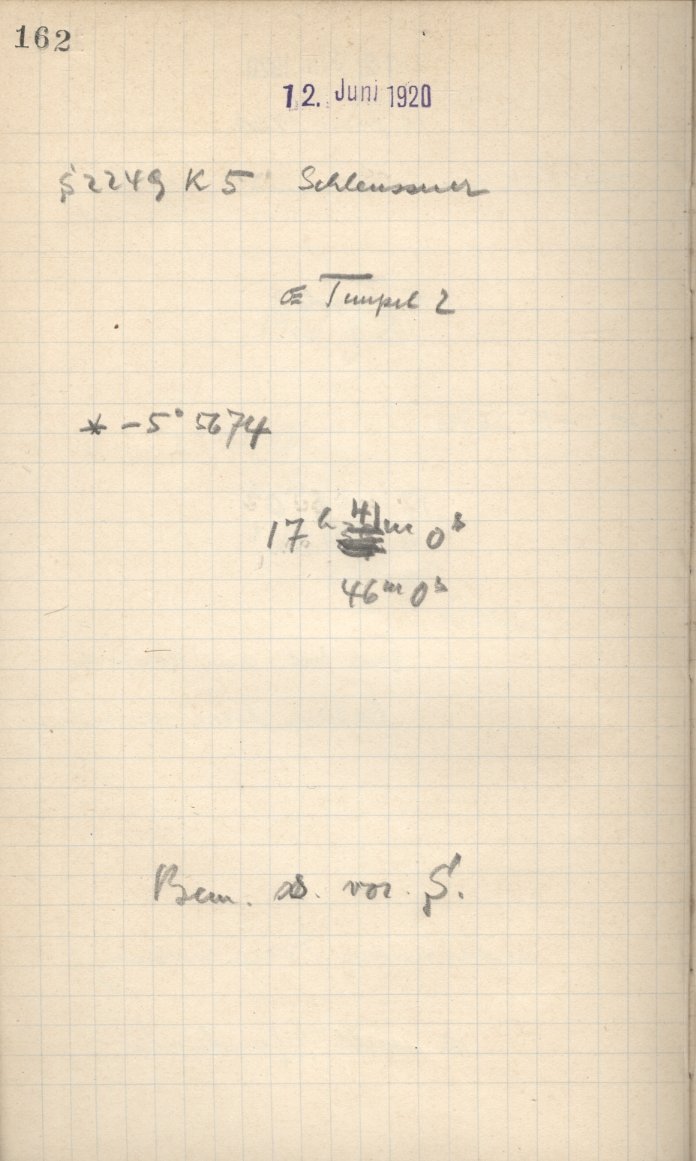 162
12. Juni 1920
§ 2249 K 5 Schleussner
☄ Tempel 2
* -5° 5674
17h 41m 0s
46m 0s
Bem. s. vor. §.